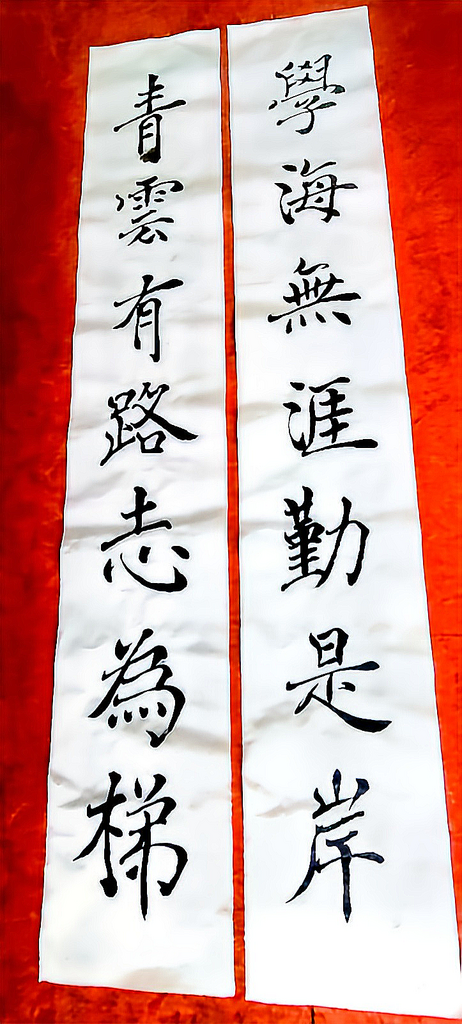 學海無涯勤是岸
青雲有路志為梯